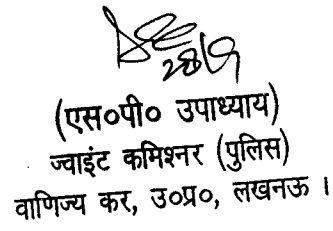 28/9
(एस०पी० उपाध्याय)
ज्वाइंट कमिश्नर (पुलिस)
वाणिज्य कर, उ०प्र०, लखनऊ ।